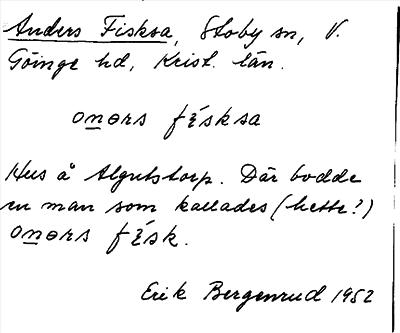 Anders Fisksa, Stoby sn, V.
Göinge hd, Krist. län.
onɵrs fisksa
Hus å Algutstorp. Där bodde
en man som kallades (hette?)
onɵrs fisk.
Erik Bergenrud 1952